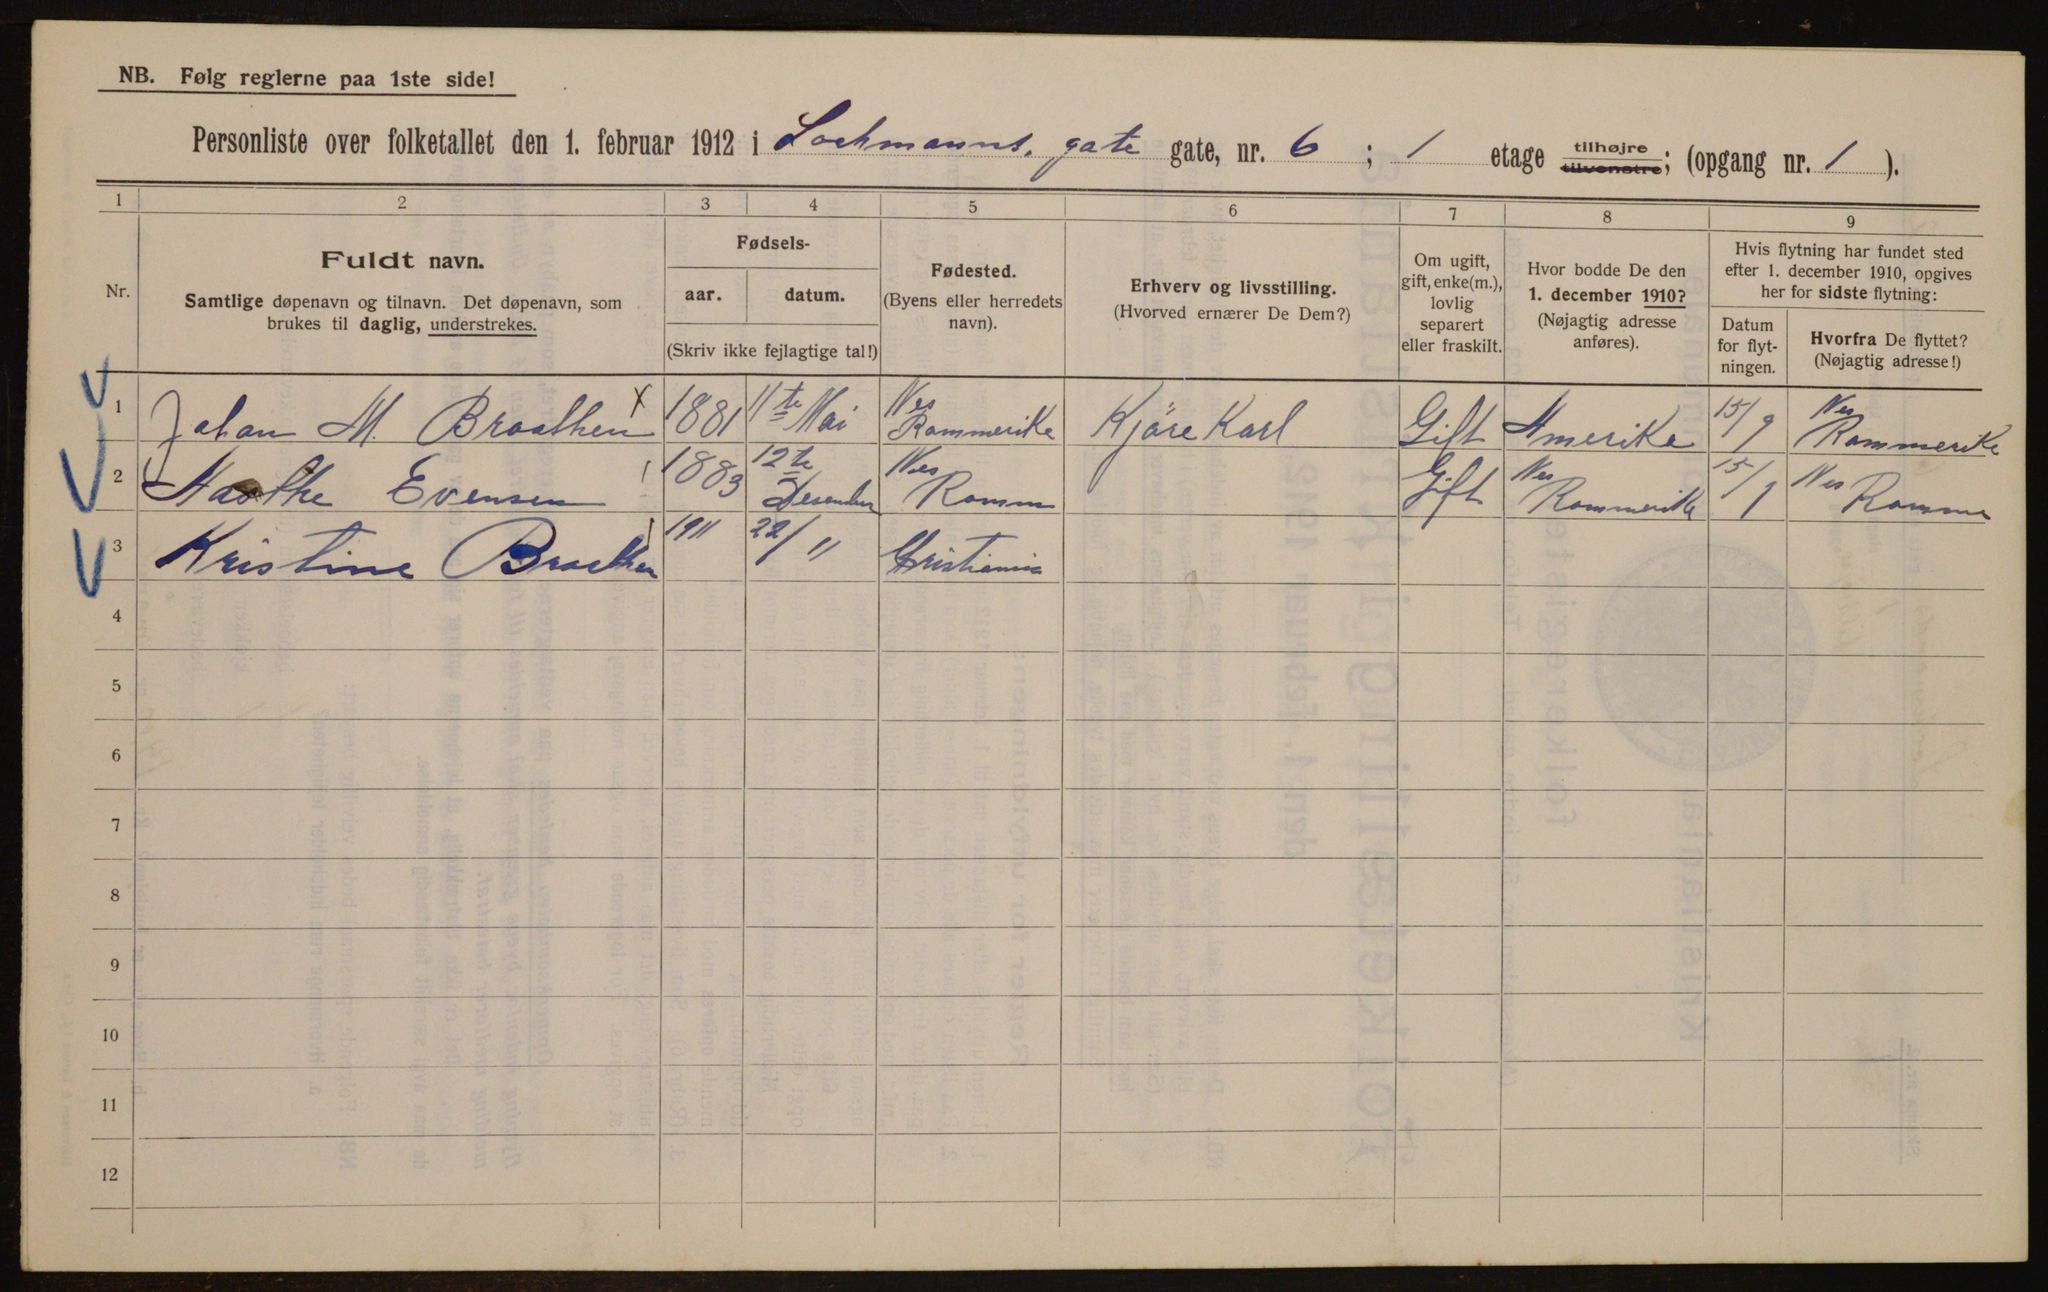 NB. Følg reglerne paa 1ste side!
Personliste over folketallet den 1. februar 1912 i Lochmanns. gate gate, nr. 6 ; 1 etage tilhøjre tilvenstre; (opgang nr. 1 ).
1 2 3 4 5 6 7 8 9
Nr.
Fuldt navn.
Samtlige døpenavn og tilnavn. Det døpenavn, som
brukes til daglig, understrekes.
Fødsels-
aar. datum.
(Skriv ikke fejlagtige tal!)
Fødested.
(Byens eller herredets
navn).
Erhverv og livsstilling.
(Hvorved ernærer De Dem?)
Om ugift,
gift, enke(m.),
lovlig
separert
eller fraskilt.
Hvor bodde De den
1. december 1910?
(Nøjagtig adresse
anføres).
Hvis flytning har fundet sted
efter 1. december 1910, opgives
her for sidste flytning:
Datum
for flyt-
ningen.
Hvorfra De flyttet?
(Nøjagtig adresse!)
1 Johan M. Braathen x 1881 11te Mai Nes Rommerike Kjöre Karl Gift Amerika 15/9 Nes Rommerike
2 Evensen 1883 12te Desember Nes Romm Gift Nes Rommerike 15/9 Nes Romme
3 Kristine Braathen 1911 22/11 Christiania
4
5
6
7
8
9
10
11
12